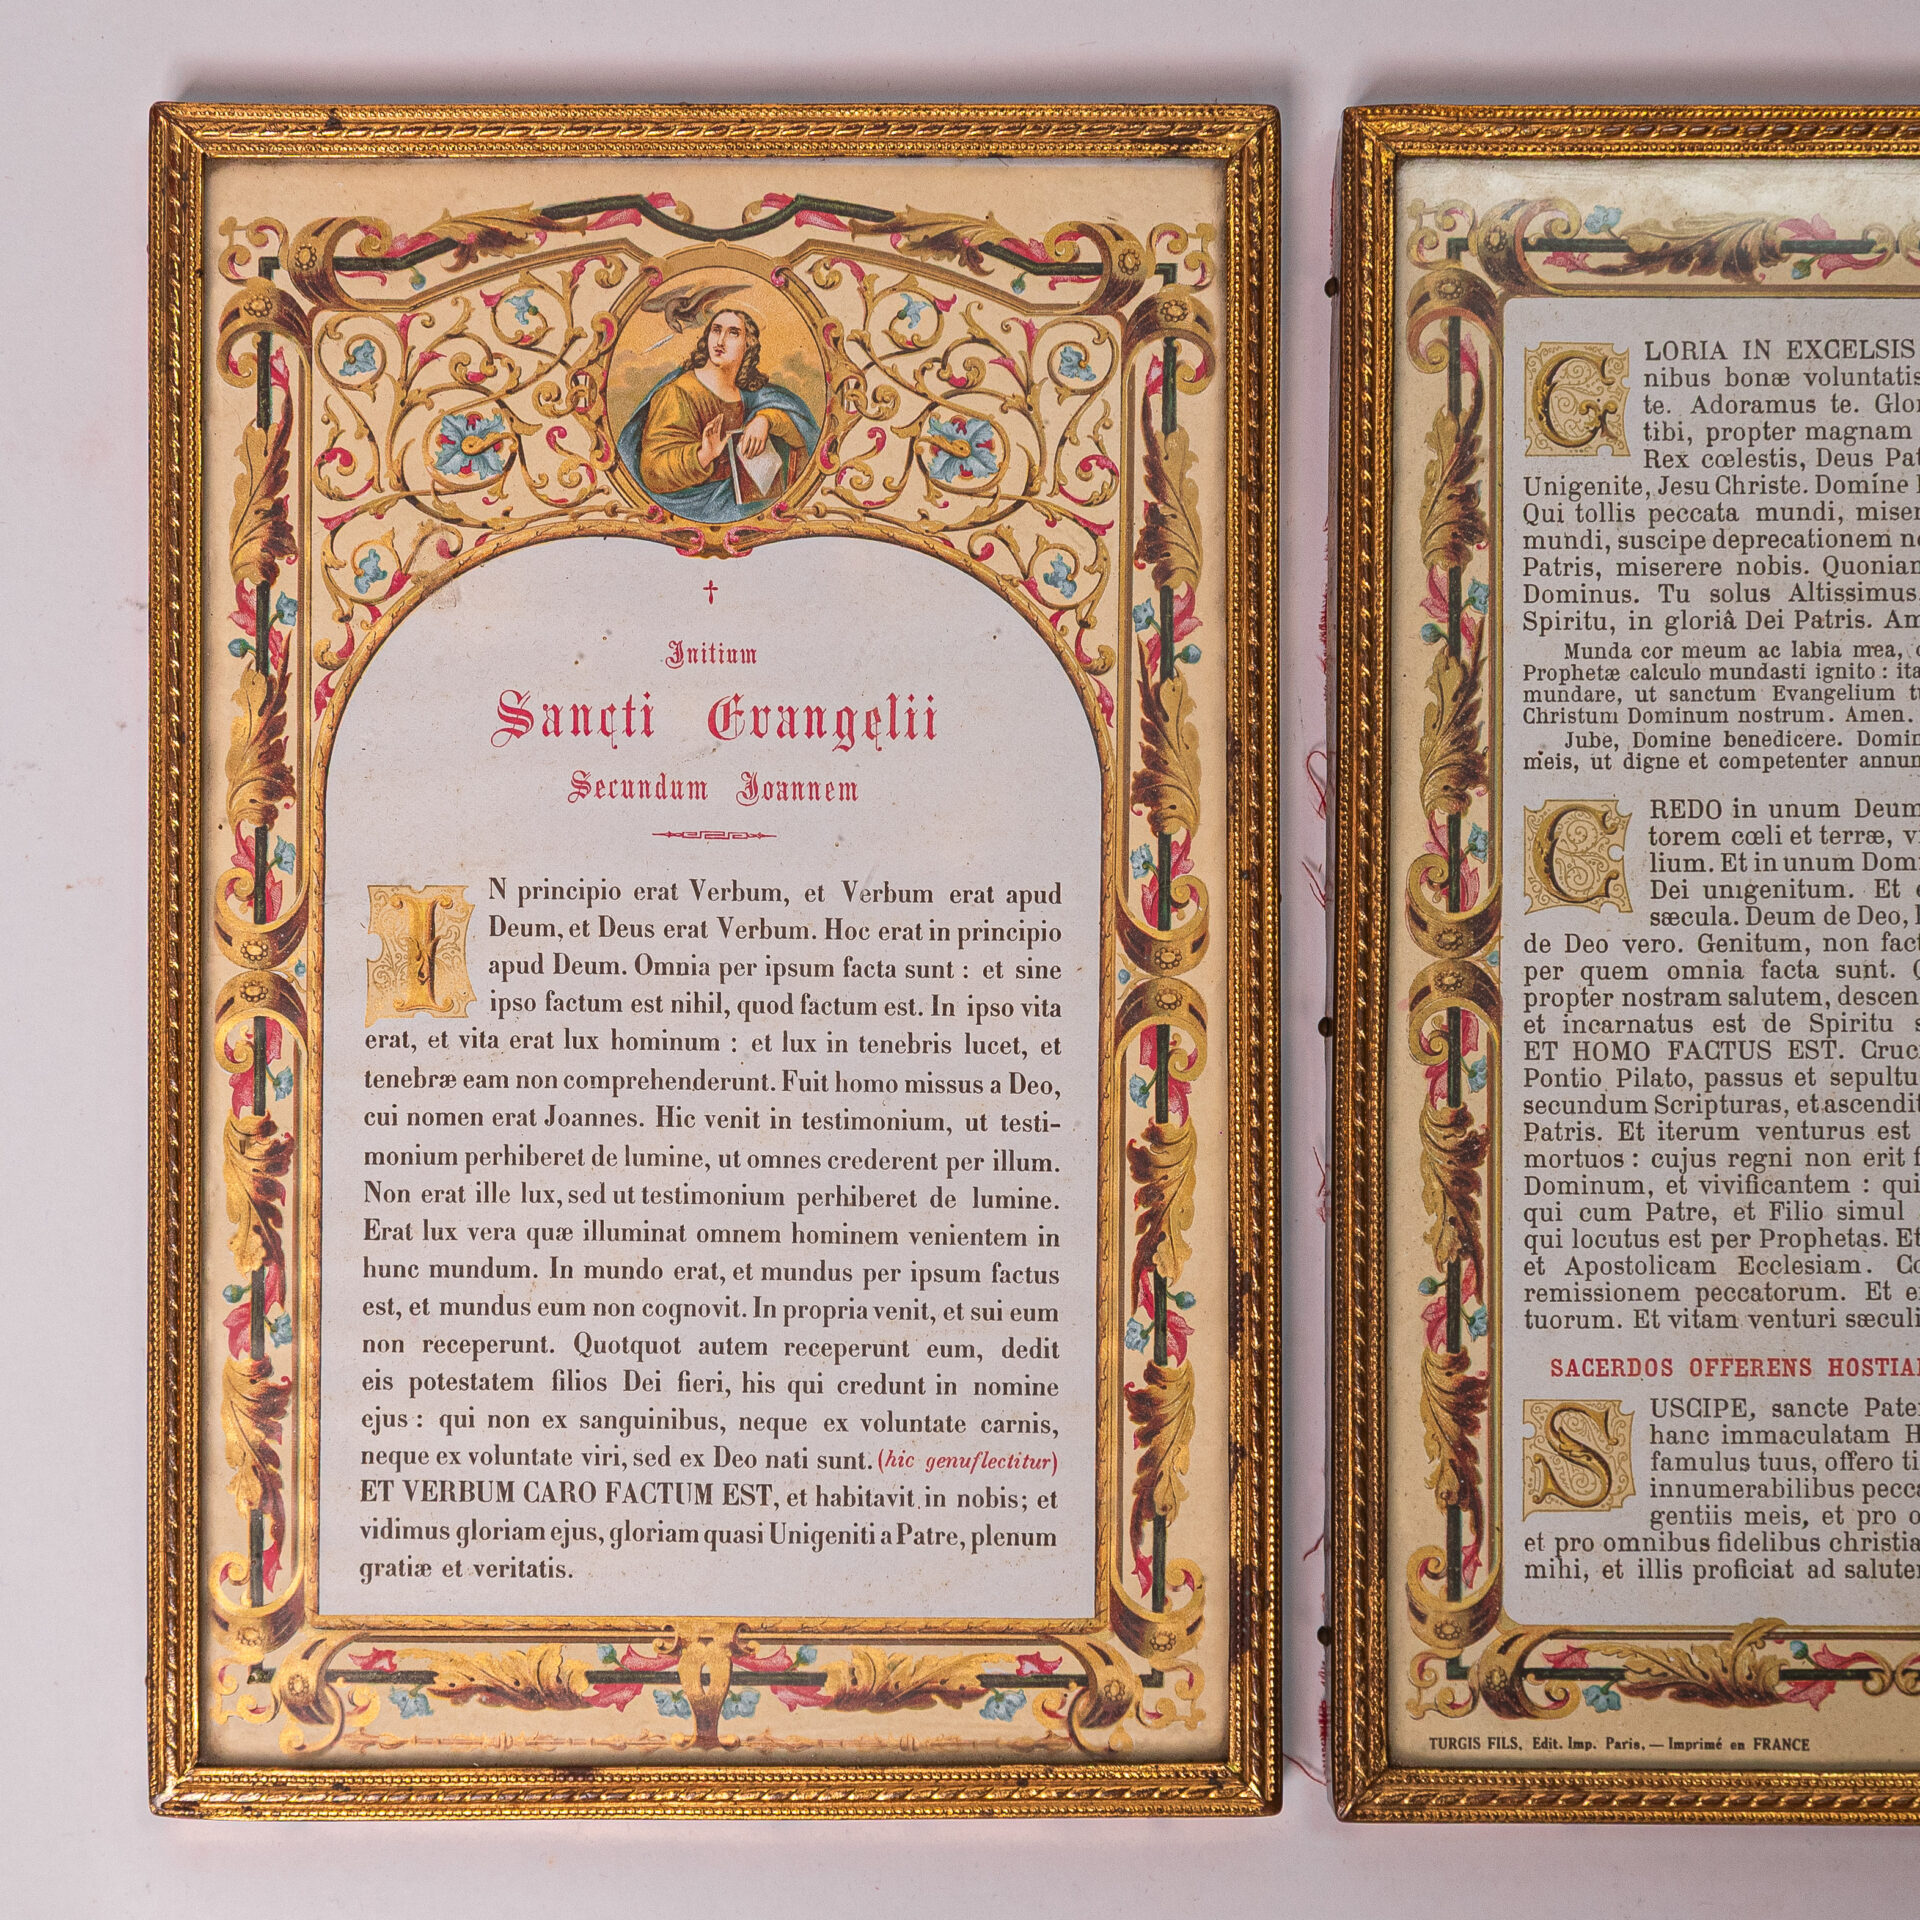 †
Initium
Sancti Evangelii
Secundum Joannem
IN principio erat Verbum, et Verbum erat apud
Deum, et Deus erat Verbum. Hoc erat in principio
apud Deum. Omnia per ipsum facta sunt : et sine
ipso factum est nihil, quod factum est. In ipso vita
erat, et vita erat lux hominum : et lux in tenebris lucet, et
tenebræ eam non comprehenderunt. Fuit homo missus a Deo,
cui nomen erat Joannes. Hic venit in testimonium, ut testi-
monium perhiberet de lumine, ut omnes crederent per illum.
Non erat ille lux, sed ut testimonium perhiberet de lumine.
Erat lux vera quæ illuminat omnem hominem venientem in
hunc mundum. In mundo erat, et mundus per ipsum factus
est, et mundus eum non cognovit. In propria venit, et sui eum
non receperunt. Quotquot autem receperunt eum, dedit
eis potestatem filios Dei fieri, his qui credunt in nomine
ejus : qui non ex sanguinibus, neque ex voluntate carnis,
neque ex voluntate viri, sed ex Deo nati sunt. (hic genuflectitur)
ET VERBUM CARO FACTUM EST, et habitavit in nobis; et
vidimus gloriam ejus, gloriam quasi Unigeniti a Patre, plenum
gratiæ et veritatis.
GLORIA IN EXCELSIS
nibus bonæ voluntatis
te. Adoramus te. Glor
tibi, propter magnam
Rex cœlestis, Deus Pat
Unigenite, Jesu Christe. Domine
Qui tollis peccata mundi, miser
mundi, suscipe deprecationem no
Patris, miserere nobis. Quoniam
Dominus. Tu solus Altissimus.
Spiritu, in gloriâ Dei Patris. Am
Munda cor meum ac labia mea,
Prophetæ calculo mundasti ignito : ita
mundare, ut sanctum Evangelium tu
Christum Dominum nostrum. Amen.
Jube, Domine benedicere. Domin
meis, ut digne et competenter annun
CREDO in unum Deum
torem cœli et terræ, vi
lium. Et in unum Domi
Dei unigenitum. Et e
sæcula. Deum de Deo, l
de Deo vero. Genitum, non fact
per quem omnia facta sunt. Q
propter nostram salutem, descen
et incarnatus est de Spiritu s
ET HOMO FACTUS EST. Cruci
Pontio Pilato, passus et sepultu
secundum Scripturas, et ascendit
Patris. Et iterum venturus est
mortuos : cujus regni non erit f
Dominum, et vivificantem : qui
qui cum Patre, et Filio simul
qui locutus est per Prophetas. Et
et Apostolicam Ecclesiam. Co
remissionem peccatorum. Et e
tuorum. Et vitam venturi sæculi
SACERDOS OFFERENS HOSTIAM
SUSCIPE, sancte Pater
hanc immaculatam H
famulus tuus, offero ti
innumerabilibus pecca
gentiis meis, et pro o
et pro omnibus fidelibus christia
mihi, et illis proficiat ad salutem
TURGIS FILS, Edit. Imp. Paris. — Imprimé en FRANCE